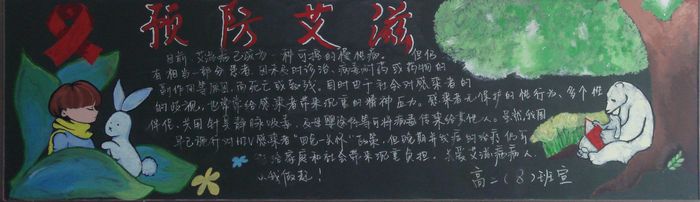 预防艾滋
目前，艾滋病已成为一种可控的慢性病。但仍
有相当一部分患者，因未及时诊治、病毒耐药或药物的
副作用等原因，而死亡或致残。同时由于社会对感染者的
的歧视，也常常给感染者带来沉重的精神压力。感染者无保护的性行为、多个性
伴侣、共用针具静脉吸毒、及母婴传播等可将病毒传染给其他人。虽然我国
早已施行对HIV感染者"四免一关怀"政策，但晚期并发症的治疗仍可
给家庭和社会带来沉重负担，关爱艾滋病病人，
从我做起！
高二（8）班宣